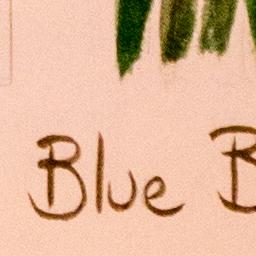 Blue B